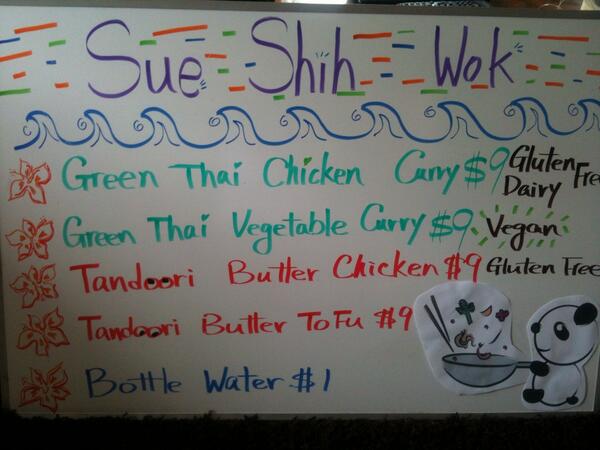 Sue Shih Wok
Green Thai Chicken Curry $9 Gluten Free
Dairy
Green Thai Vegetable Curry $9 Vegan
Tandoori Butter Chicken $9 Gluten Free
Tandoori Butter ToFu $9
Bottle Water $1